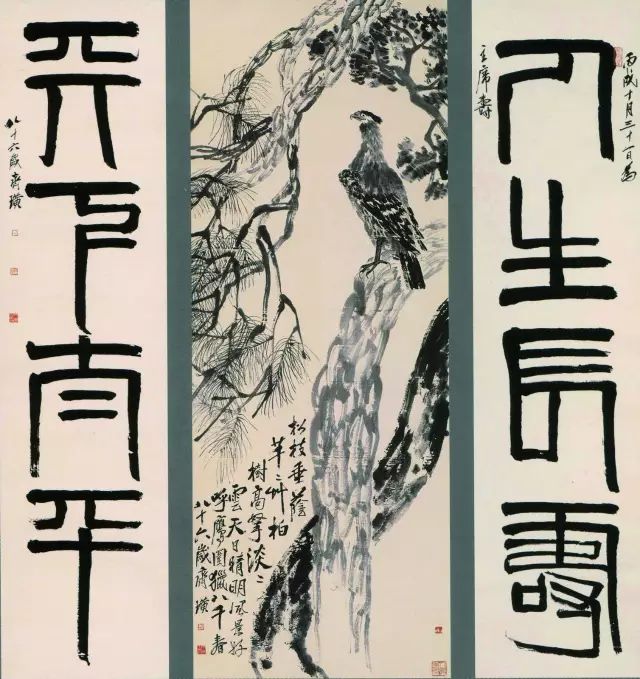 人生長壽
丙戌十月三十一日為
主席壽
松枝垂蔭
芊〻艸柏
樹高拏淡〻
雲天日晴明風景好
呼鷹圍獵八千春
八十六歲齊璜
天下太平
八十六歲齊璜